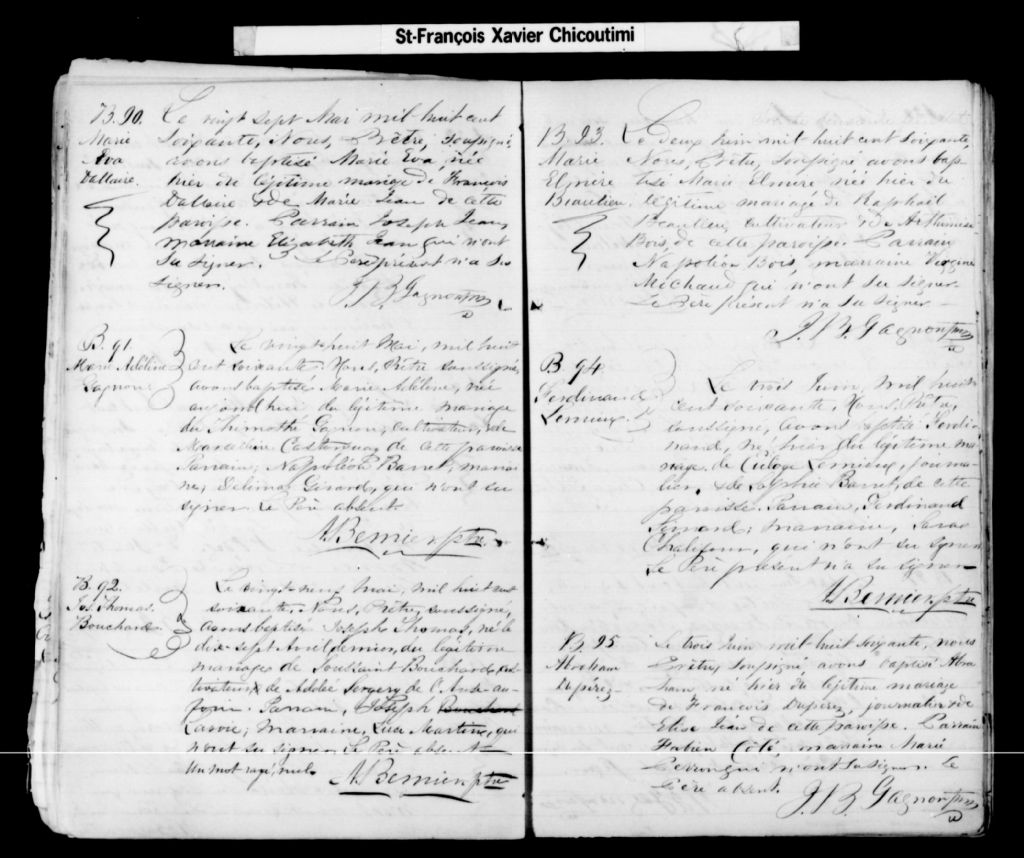 St-François Xavier Chicoutimi
B. 90.
Marie
Eva
Dallaire.
Le vingt sept Mai mil huit cent
soixante, Nous, Prêtre, soussigné,
avons baptisé Marie Eva, née
hier du légitime mariage de François
Dallaire & de Marie Jean de cette
paroisse. Parrain Joseph Jean,
marraine Elizabeth Jean qui n'ont
su signer. Le Père présent n'a su
signer.
J. B. Gagnon ptre
B. 91.
Marie Adéline
Gagnon
Le vingt huit Mai, mil huit
cent soixante, Nous, Prêtre soussigné,
avons baptisé Marie Adéline, née
aujourd'hui du légitime mariage
du Thimothé Gagnon, cultivateur, & de
de cette paroisse
Parrain, Napoléon Barret, marrai
ne, Délima Girard, qui n'ont su
signer. Le Père absent.
A. Bernier, ptre
B. 92.
Jos. Thomas
Bouchard
Le vingt-neuf Mai, mil huit cent
soixante, Nous, Prêtre, soussigné,
avons baptisé Joseph Thomas, né le
dix-sept Avril dernier, du légitime
mariage de Toussaint Bouchard, cul
tivateur & de de l'Anse-au-
Foin. Parrain, Joseph Bouchard
Lavoie; Marraine, Luce Martine, qui
n'ont su signer. Le Père absent
Un mot rayé, nul.
A. Bernier, ptre
B. 93.
Marie
Elmire
Beaulieu
Le deux Juin mil huit cent soixante,
Nous, Prêtre, soussigné avons bap
tisé Marie Elmire née hier du
légitime mariage de Raphaël
Beaulieu, cultivateur & de Arthémise
Bois, de cette paroisse. Parrain
Napoléon Bois, marraine Virginie
Michaud qui n'ont su signer.
Le Père présent n'a su signer
J. B. Gagnon ptre
B. 94.
Ferdinand
Lemieux
Le trois Juin, mil huit
cent soixante, Nous, Prêtre,
soussigné, avons baptisé Ferdi
nand, né hier du légitime ma
riage de Euloge Lemieux, journa
lier, & de Sophie Barret, de cette
paroisse. Parrain, Ferdinand
marraine,
Chalifour, qui n'ont su signer
Le Père présent n'a su signer
A. Bernier ptre
B. 95
Abraham
Dupéré
Le trois Juin mil huit soixante, nous
Prêtre, soussigné avons baptisé Abra
ham né hier du légitime mariage
de François Dupéré, journalier & de
Elise de cette paroisse. Parrain
Fabien Côté, marraine Marie
qui n'ont su signer. Le
Père absent.
J. B. Gagnon ptre